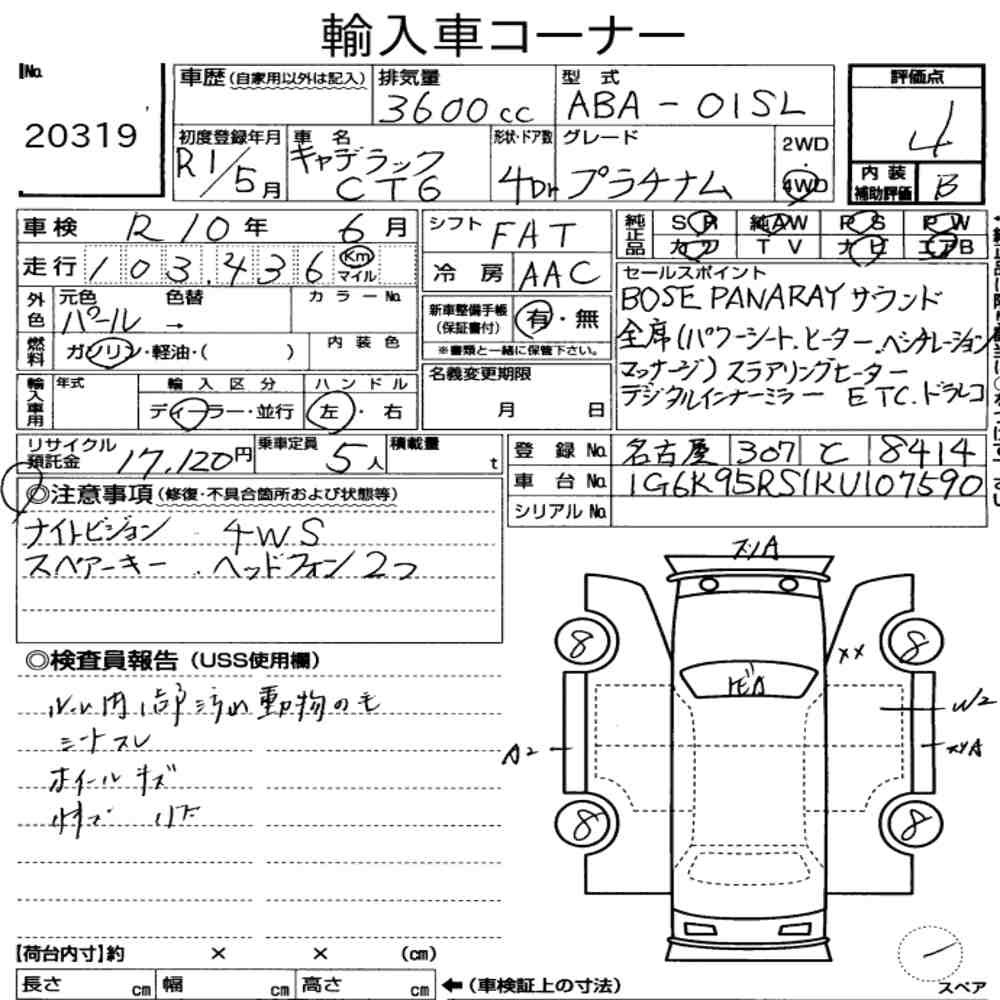 輸入車コーナー
No.
20319
車歴(自家用以外は記入)
排気量
3600cc
型式
ABA-01SL
評価点
4
初度登録年月
R1/5月
車名
キャデラック
CT6
形状・ドア数
4Dr
グレード
プラチナム
2WD
・
4WD
内装
補助評価
B
車検 R10年 6月
走行 103,436 Km
マイル
外色
元色 色替 カラーNo.
パール →
燃料
ガソリン・軽油・( )
内装色
輸入車用
年式
輸入区分
ディーラー・並行
ハンドル
左・右
シフト FAT
冷房 AAC
新車整備手帳
(保証書付)
有・無
※書類と一緒に保管下さい。
名義変更期限
月 日
純正品
SR 純AW PS PW
カワ TV ナビ エアB
セールスポイント
BOSE PANARAYサウンド
全席(パワーシート.ヒーター.ベンチレーション
マッサージ)ステアリングヒーター
デジタルインナーミラー ETC.ドラレコ
リサイクル
預託金
17,120円
乗車定員
5人
積載量
t
登録No. 名古屋 307 と 8414
車台No. 1G6K95RS1KU107590
シリアルNo.
◎注意事項(修復・不具合箇所および状態等)
ナイトビジョン . 4WS
スペアーキー . ヘッドフォン2つ
◎検査員報告(USS使用欄)
内部汚れ動物の毛
シートスレ
ホイールキズ
スリA
トビA
8
8
××
W2
A2
スリA
8
8
【荷台内寸】約 × × (cm)
長さ cm 幅 cm 高さ cm
←(車検証上の寸法)
スペア